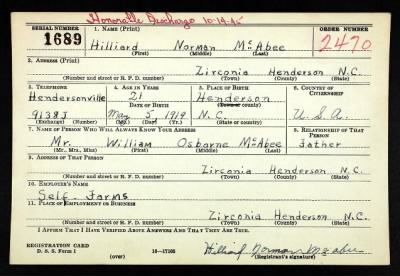 Honorable Discharge 10-14-45
SERIAL NUMBER 1. NAME (Print) ORDER NUMBER
1689 Hilliard Norman McAbee 2470
(First) (Middle) (Last)
2. ADDRESS (Print)
Zirconia Henderson N.C.
(Number and street or R. F. D. number) (Town) (County) (State)
3. TELEPHONE 4. AGE IN YEARS 5. PLACE OF BIRTH 6. COUNTRY OF CITIZENSHIP
Hendersonville 21 Henderson
DATE OF BIRTH (Town or county)
9138J May 5 1919 N.C. U.S.A.
(Exchange) (Number) (Mo.) (Day) (Yr.) (State or country)
7. NAME OF PERSON WHO WILL ALWAYS KNOW YOUR ADDRESS 8. RELATIONSHIP OF THAT PERSON
Mr. William Osborne McAbee father
(Mr., Mrs., Miss) (First) (Middle) (Last)
9. ADDRESS OF THAT PERSON
Zirconia Henderson N.C.
(Number and street or R. F. D. number) (Town) (County) (State)
10. EMPLOYER'S NAME
Self - Farms
11. PLACE OF EMPLOYMENT OR BUSINESS
Zirconia Henderson N.C.
(Number and street or R. F. D. number) (Town) (County) (State)
I AFFIRM THAT I HAVE VERIFIED ABOVE ANSWERS AND THAT THEY ARE TRUE.
REGISTRATION CARD
D. S. S. Form 1 (over) 16-17105 Hilliard Norman McAbee
(Registrant's signature)